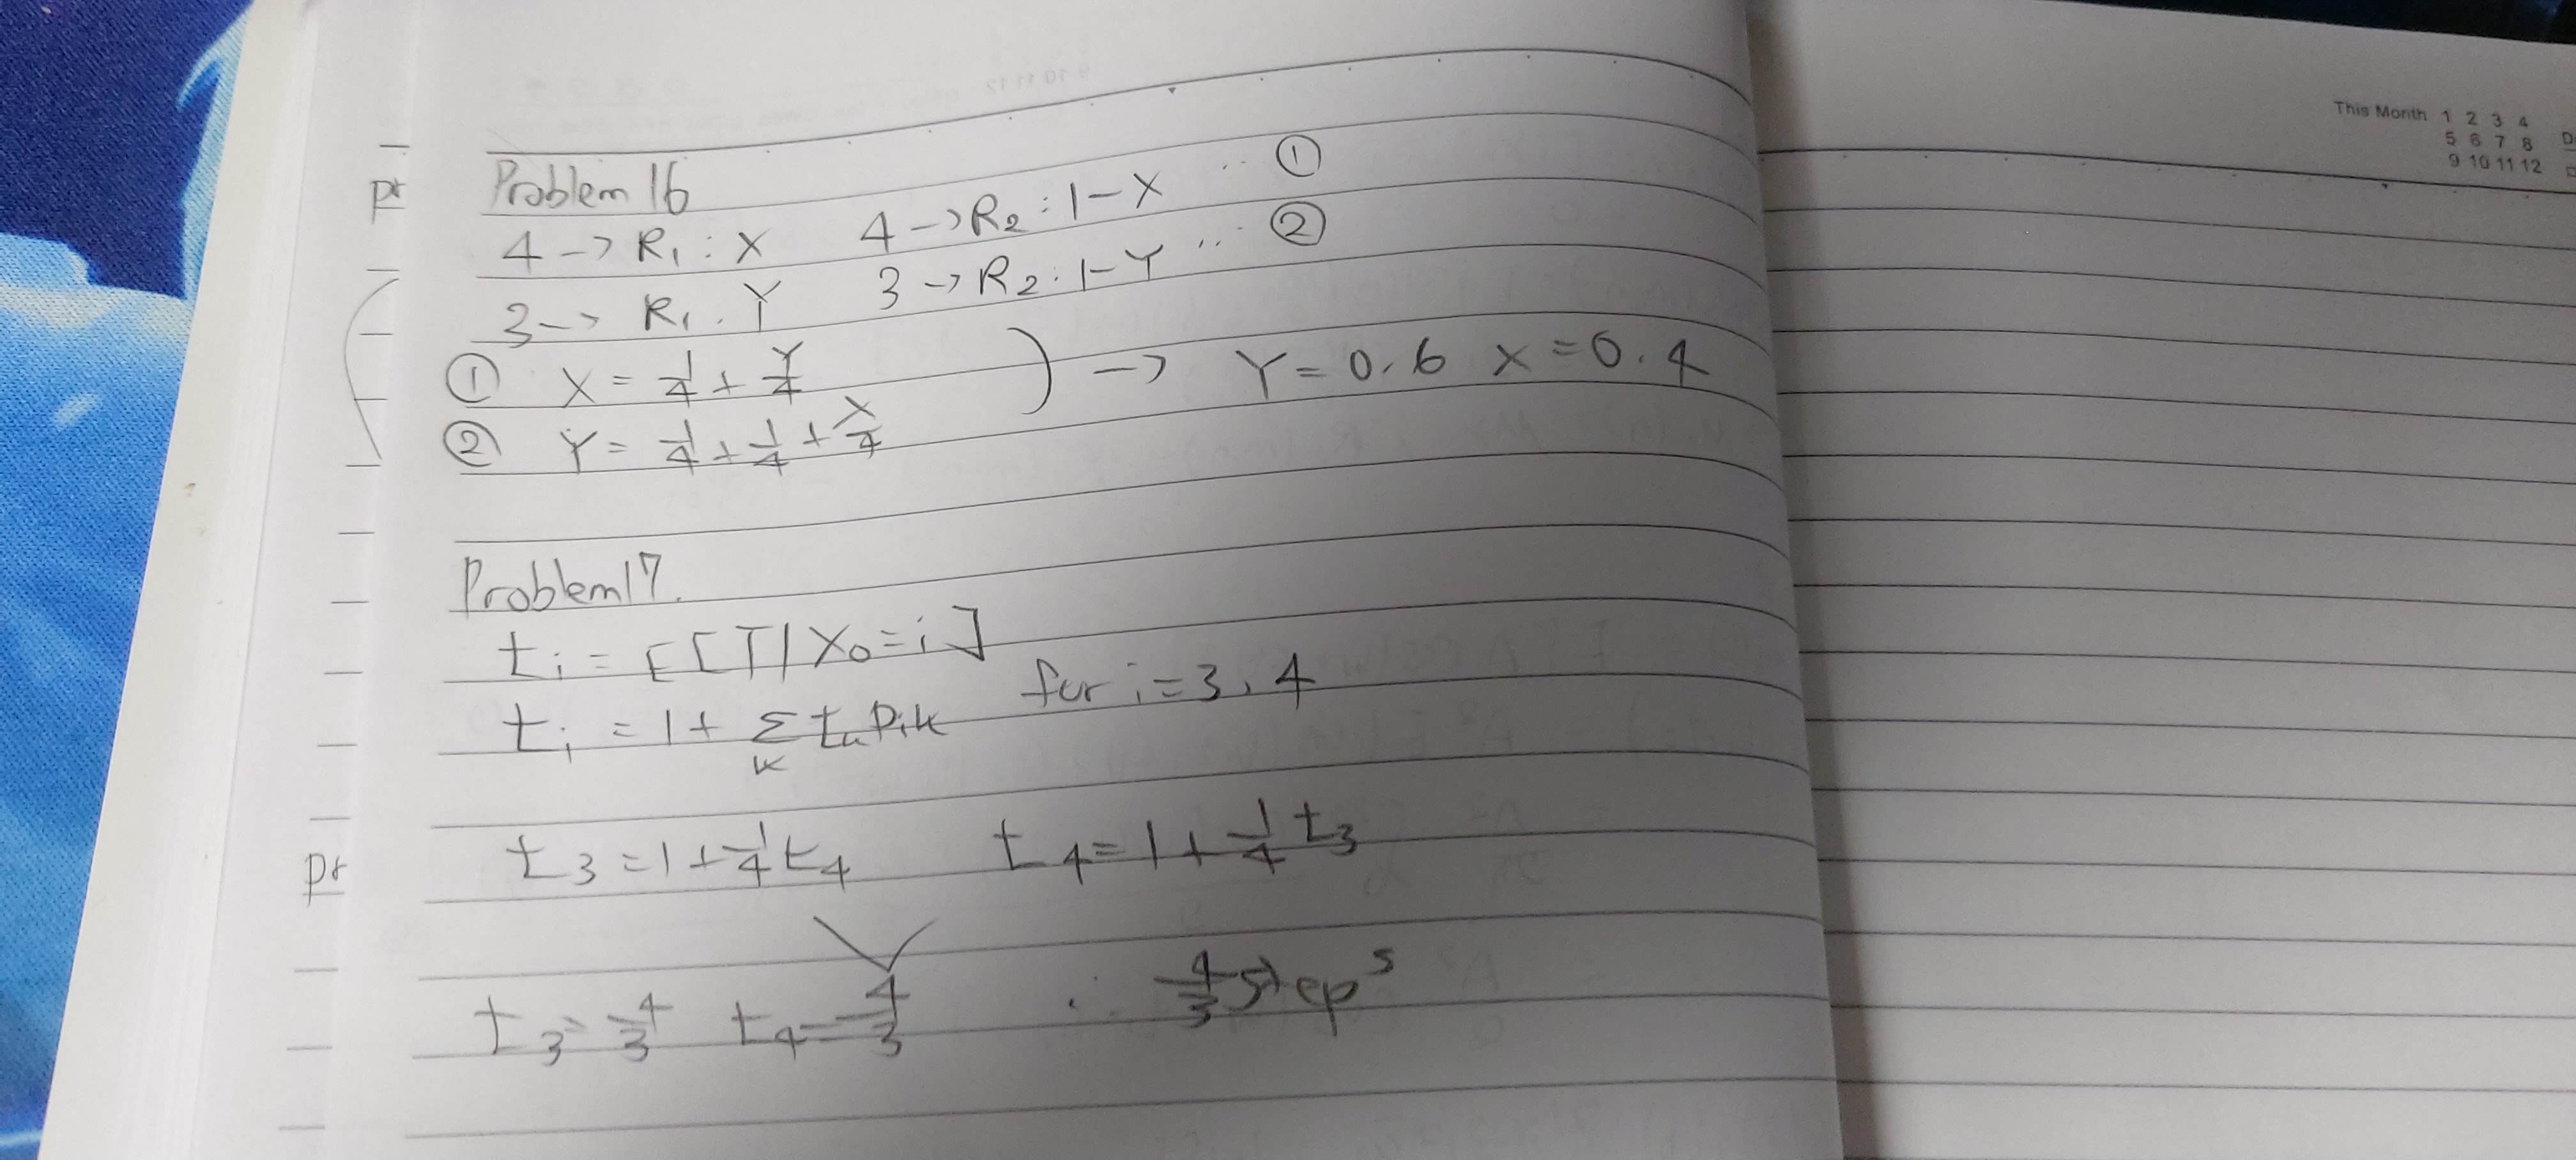 Problem 16
4 -> R₁ : X 4 -> R₂ : 1-X ... ①
3 -> R₁ . Y 3 -> R₂ : 1-Y ... ②
① X = 1/4 + Y/4
② Y = 1/4 + 1/4 + X/4
) -> Y = 0.6 X = 0.4
Problem 17.
tᵢ = E[T|X₀=i]
tᵢ = 1 + Σₖ tₖ Pᵢₖ for i=3, 4
t₃ = 1 + 1/4 t₄ t₄ = 1 + 1/4 t₃
t₃ = 4/3 t₄ = 4/3 ∴ 4/3 steps
pr
pr
This Month 1 2 3 4
5 6 7 8 D
9 10 11 12